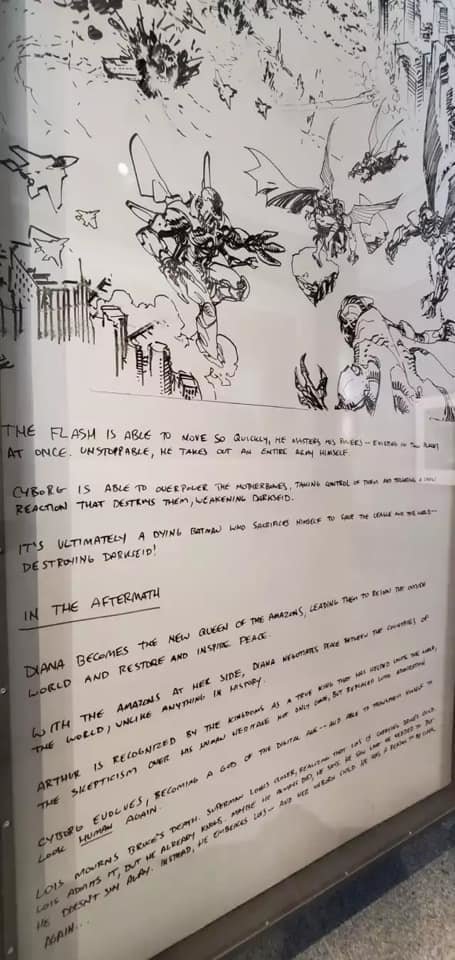 THE FLASH IS ABLE TO MOVE SO QUICKLY, HE MASTERS HIS POWERS -- EXISTING IN TWO PLACES
AT ONCE. UNSTOPPABLE, HE TAKES OUT AN ENTIRE ARMY HIMSELF.
CYBORG IS ABLE TO OVERPOWER THE MOTHERBOXES, TAKING CONTROL OF THEM AND TRIGGERING A CHAIN
REACTION THAT DESTROYS THEM, WEAKENING DARKSEID.
IT'S ULTIMATELY A DYING BATMAN WHO SACRIFICES HIMSELF TO SAVE THE LEAGUE AND THE WORLD --
DESTROYING DARKSEID!
IN THE AFTERMATH
DIANA BECOMES THE NEW QUEEN OF THE AMAZONS, LEADING THEM TO REJOIN THE OUTSIDE
WORLD AND RESTORE AND INSPIRE PEACE.
WITH THE AMAZONS AT HER SIDE, DIANA NEGOTIATES PEACE BETWEEN THE COUNTRIES OF
THE WORLD, UNLIKE ANYTHING IN HISTORY.
ARTHUR IS RECOGNIZED BY THE KINGDOMS AS A TRUE KING THAT HAS HELPED UNITE THE WORLD,
THE SKEPTICISM OVER HIS HUMAN HERITAGE NOT ONLY GONE, BUT REPLACED WITH ADMIRATION.
CYBORG EVOLVES, BECOMING A GOD OF THE DIGITAL AGE -- AND ABLE TO TRANSFORM HIMSELF TO
LOOK HUMAN AGAIN.
LOIS MOURNS BRUCE'S DEATH. SUPERMAN LOOKS CLOSER, REALIZING THAT LOIS IS CARRYING BRUCE'S CHILD.
LOIS ADMITS IT, BUT HE ALREADY KNOWS. MAYBE HE ALWAYS DID, HE SAYS. HE
HE DOESN'T SHY AWAY. INSTEAD, HE EMBRACES LOIS -- AND HER UNBORN CHILD. HE HAS A PERSON TO BE CLARK
AGAIN...